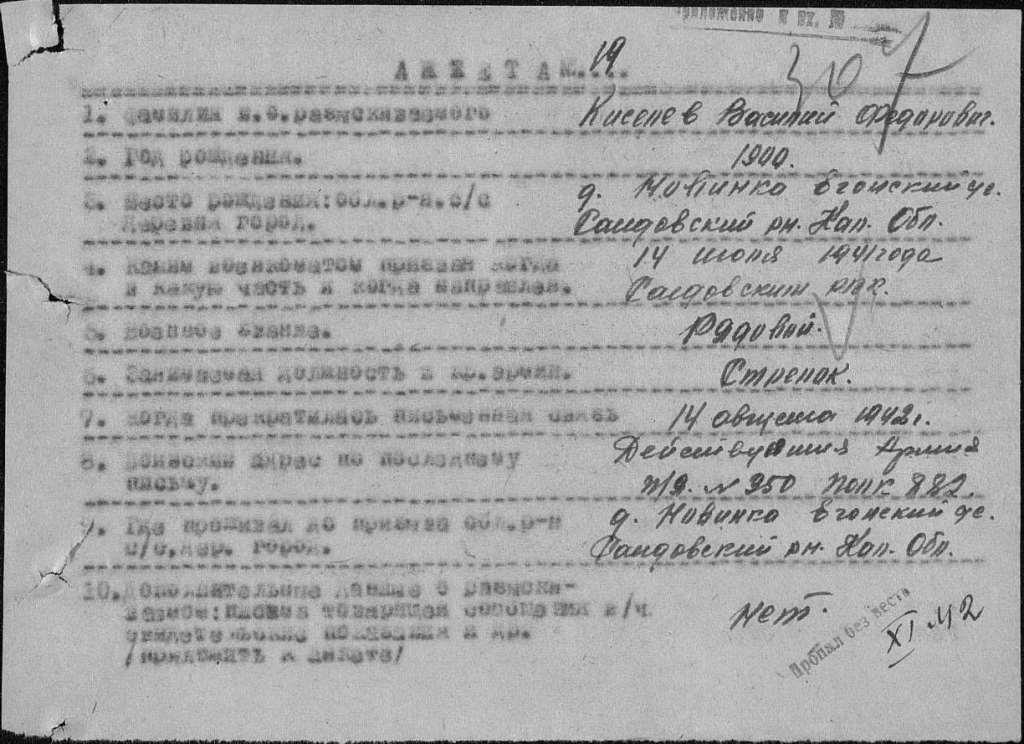 приложение к вх. №
АНКЕТА №.... 19
307
1. Фамилия и.о. разыскиваемого Киселев Василий Федорович.
2. Год рождения. 1900.
3. Место рождения: обл. р-н. с/с д. Новинка
деревня город. Сандовский рн. Кал. Обл.
4. Каким военкоматом призван когда 14 июля 1941 года
и какую часть и когда направлен. Сандовским рвк.
5. Военное звание. Рядовой.
6. Занимаемая должность в кр. армии. Стрелок.
7. Когда прекратилась письменная связь 14 августа 1942 г.
8. Воинский адрес по последнему Действующия Армия
письму. П/я. № 350 полк 882.
9. Где проживал до призыва обл. р-н д. Новинка
с/с, дер. город. Сандовский рн. Кал. Обл.
10. Дополнительные данные о разыски-
ваемом: письма товарищей сообщения в/ч
свидетельские показания и др. нет.
/приложить к анкете/
Пропал без вести XI-42